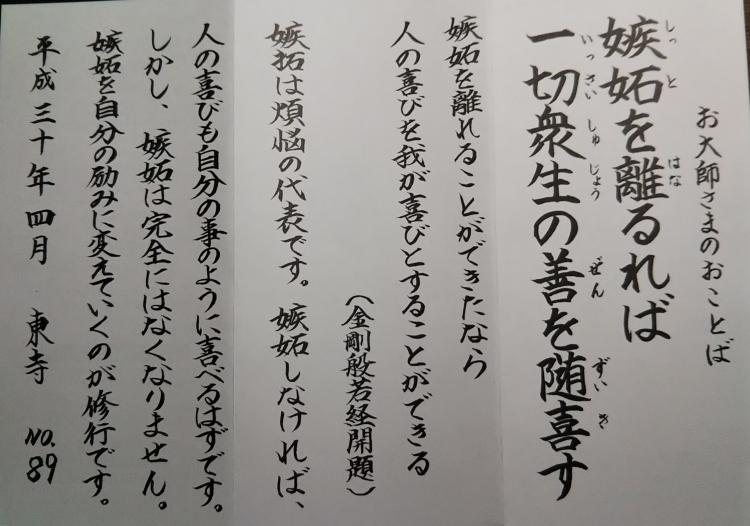 お大師さまのおことば
嫉妬を離るれば
一切衆生の善を随喜す
嫉妬を離れることができたなら
人の喜びを我が喜びとすることができる
(金剛般若経開題)
嫉妬は煩悩の代表です。嫉妬しなければ、
人の喜びも自分の事のように喜べるはずです。
しかし、嫉妬は完全にはなくなりません。
嫉妬を自分の励みに変えていくのが修行です。
平成三十年四月 東寺 NO.89